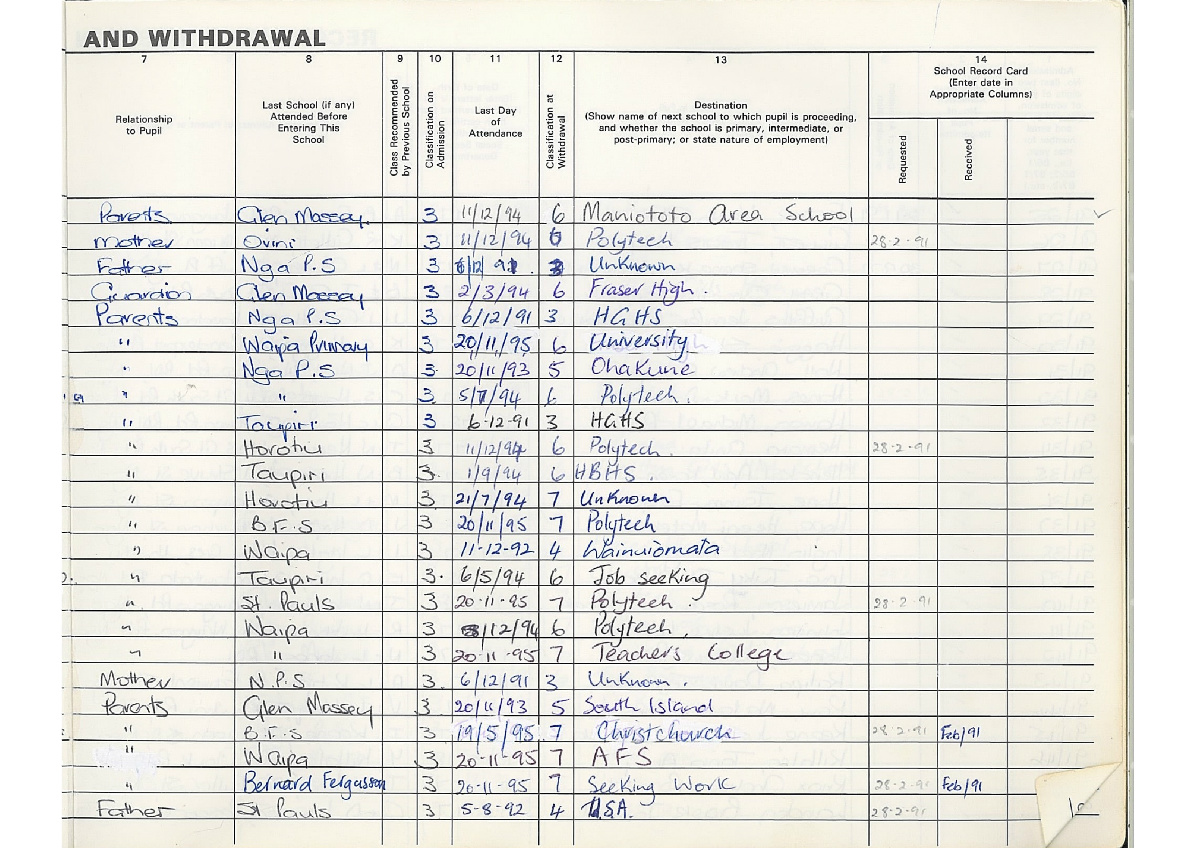 AND WITHDRAWAL
7 8 9 10 11 12 13 14
Relationship to Pupil
Last School (if any) Attended Before Entering This School
Class Recommended by Previous School
Classification on Admission
Last Day of Attendance
Classification at Withdrawal
Destination
(Show name of next school to which pupil is proceeding, and whether the school is primary, intermediate, or post-primary; or state nature of employment)
School Record Card (Enter date in Appropriate Columns)
Requested
Received
Parents Glen Massey. 3 11/12/94 6 Maniototo Area School
Mother Ovini 3 11/12/94 6 Polytech 28-2-91
Father Nga P.S 3 6/12 91. 3 Unknown
Guardian Glen Massey 3 2/3/94 6 Fraser High.
Parents Nga P.S 3 6/12/91 3 HGHS
" Waipa Primary 3 20/11/95 6 University
" Nga P.S 3. 20/11/93 5 Ohakune
" " 3. 5/7/94 6 Polytech.
" Taupiri. 3 6-12-91 3 HGHS
" Horotiu 3 11/12/94 6 Polytech. 28-2-91
" Taupiri 3. 1/9/94 6 HBHS.
" Horotiu 3. 21/7/94 7 Unknown
" B.F.S 3 20/11/95 7 Polytech
" Waipa 3 11-12-92 4 Wainuiomata
" Taupiri 3. 6/5/94 6 Job seeking
" St. Pauls 3 20-11-95 7 Polytech. 28-2-91
" Waipa 3 8/12/94 6 Polytech.
" " 3 20-11-95 7 Teachers College
Mother N.P.S 3. 6/12/91 3 Unknown.
Parents Glen Massey 3 20/11/93 5 South Island
" B.F.S 3 19/5/95 7 Christchurch 28-2-91 Feb/91
" Waipa 3 20-11-95 7 AFS
" Bernard Fergusson 3 20-11-95 7 Seeking Work 28-2-91 Feb/91
Father St Pauls 3 5-8-92 4 U.S.A. 28-2-91